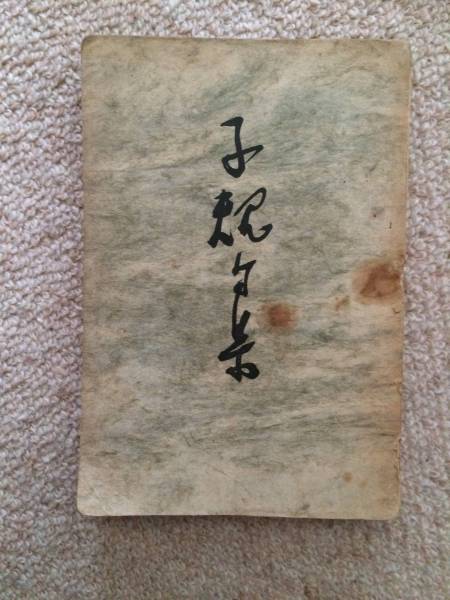 子規句集